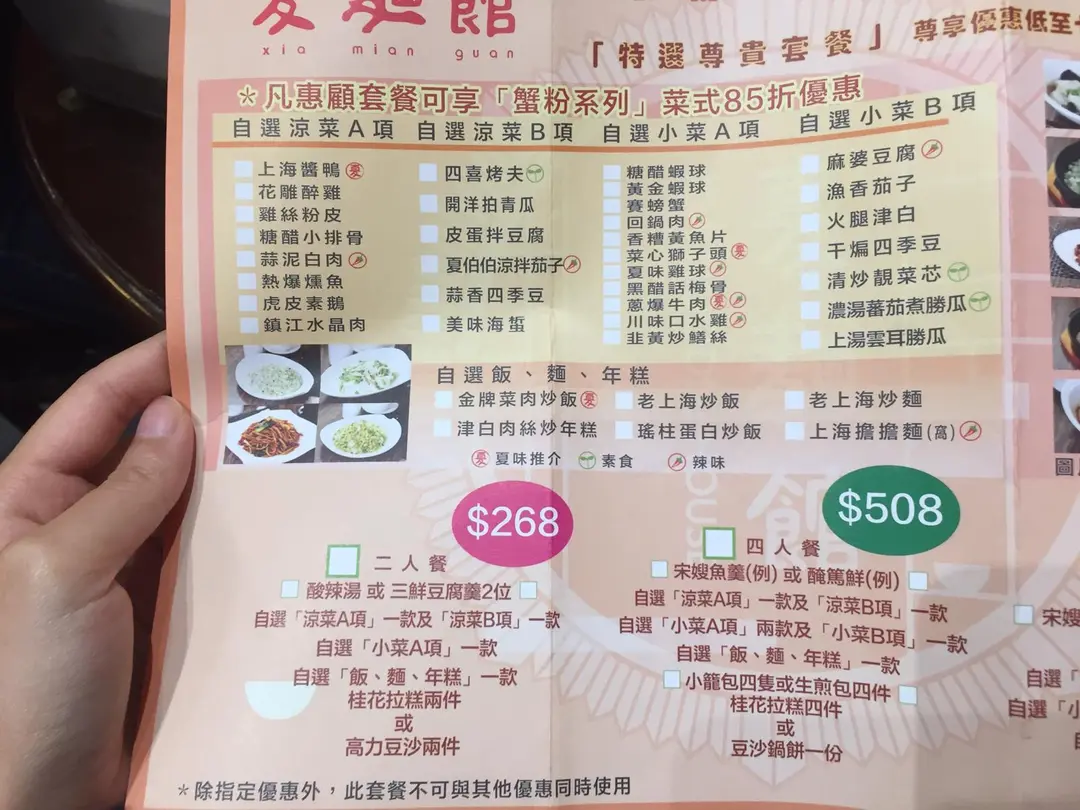 夏麵館
xia mian guan
「特選尊貴套餐」 尊享優惠低至
＊凡惠顧套餐可享「蟹粉系列」菜式85折優惠
自選涼菜A項
上海醬鴨
花雕醉雞
雞絲粉皮
糖醋小排骨
蒜泥白肉
熱爆燻魚
虎皮素鵝
鎮江水晶肉
自選涼菜B項
四喜烤夫
開洋拍青瓜
皮蛋拌豆腐
夏伯伯涼拌茄子
蒜香四季豆
美味海蜇
自選小菜A項
糖醋蝦球
黃金蝦球
賽螃蟹
回鍋肉
香糟黃魚片
菜心獅子頭
夏味雞球
黑醋話梅骨
蔥爆牛肉
川味口水雞
韭黃炒鱔絲
自選小菜B項
麻婆豆腐
漁香茄子
火腿津白
干煸四季豆
清炒靚菜芯
濃湯蕃茄煮勝瓜
上湯雲耳勝瓜
自選飯、麵、年糕
金牌菜肉炒飯 老上海炒飯 老上海炒麵
津白肉絲炒年糕 瑤柱蛋白炒飯 上海擔擔麵(窩)
夏 夏味推介 素食 辣味
$268
二人餐
酸辣湯 或 三鮮豆腐羹2位
自選「涼菜A項」一款及「涼菜B項」一款
自選「小菜A項」一款
自選「飯、麵、年糕」一款
桂花拉糕兩件
或
高力豆沙兩件
$508
四人餐
宋嫂魚羹(例) 或 醃篤鮮(例)
自選「涼菜A項」一款及「涼菜B項」一款
自選「小菜A項」兩款及「小菜B項」一款
自選「飯、麵、年糕」一款
小籠包四隻或生煎包四件
桂花拉糕四件
或
豆沙鍋餅一份
宋嫂
自選「
自選「小
＊除指定優惠外，此套餐不可與其他優惠同時使用